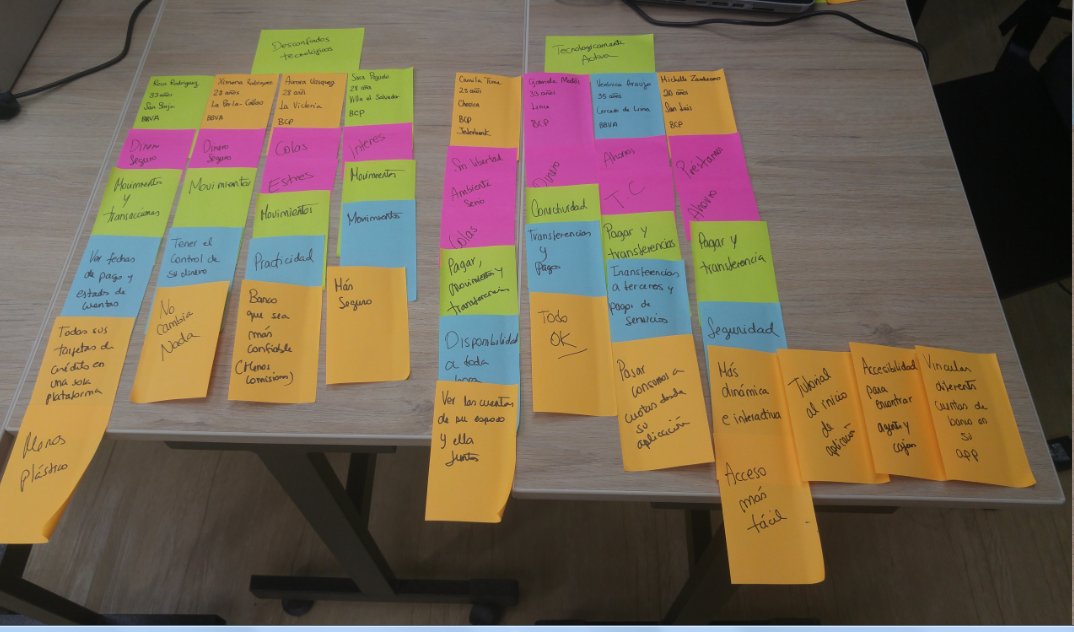 Desconfiados
tecnológicos
Rosa Rodríguez
33 años
San Borja
BBVA
Dinero
Seguro
Movimientos
y
transacciones
Ver fechas
de pago y
estados de
cuentas
Todas sus
tarjetas de
crédito en
una sola
plataforma
Menos
plástico
Ximena Rodríguez
28 años
La Perla-Callao
BBVA
Dinero
Seguro
Movimientos
Tener el
control de
su dinero
No
cambia
Nada
28 años
La Victoria
BCP
Colas
Estres
Movimientos
Practicidad
Banco
que sea
más
confiable
(Menos
comisiones)
28 años
Villa el Salvador
BCP
Interes
Movimientos
Movimientos
Más
Seguro
Tecnologicamente
Activa
Camila
25 años
BCP
Interbank
Sin libertad
Ambiente
Serio
Colas
Pagar,
movimientos y
transferencias
Disponibilidad
a toda
hora
Ver las cuentas
de su esposo
y ella
juntos
33 años
BCP
Dinero
Conectividad
Transferencias
y
Pagos
Todo
OK
Verónica Araujo
35 años
Cercado de Lima
BBVA
Ahorro
TC
Pagar y
transferencias
Transferencias
a terceros y
pagos de
servicios
Pasar
consumos a
cuotas desde
su
aplicación
Michelle Zambrano
20 años
San Luis
BCP
Préstamo
Ahorro
Pagar y
transferencia
Seguridad
Más
dinámica
e interactiva
Acceso
más
fácil
Tutorial
al inicio
de
aplicación
Accesibilidad
para
encontrar
agentes y
cajeros
Vincular
diferentes
cuentas de
banco en
su
app